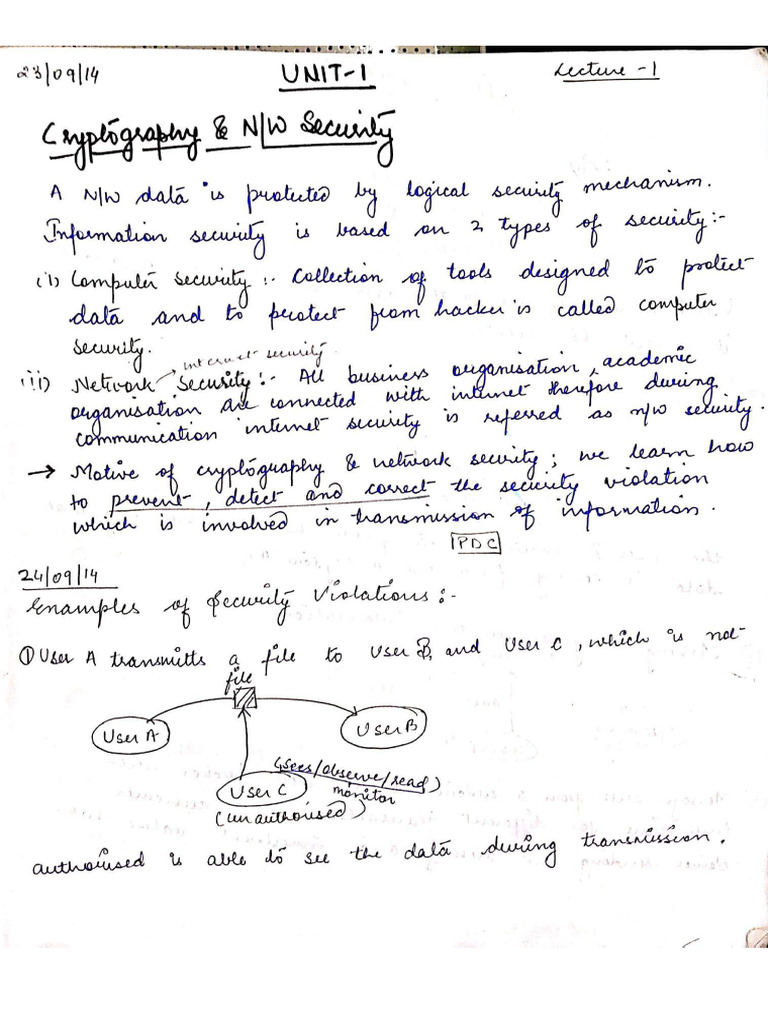 23/09/14 UNIT-1 Lecture-1
Cryptography & N/W Security
A N/W data is protected by logical security mechanism.
Information security is based on 2 types of security:-
(i) Computer Security:- Collection of tools designed to protect
data and to protect from hacker is called computer
security.
internet security
(ii) Network Security:- All business organisation, academic
organisation are connected with internet therefore during
communication internet security is referred as n/w security.
→ Motive of cryptography & network security; we learn how
to prevent, detect and correct the security violation
which is involved in transmission of information.
PDC
24/09/14
Examples of Security Violations:-
① User A transmitts a file to User B, and User C, which is not
file
User A
User B
(sees/observe/read)
User C
monitor
(unauthorised)
authorised is able to see the data during transmission.